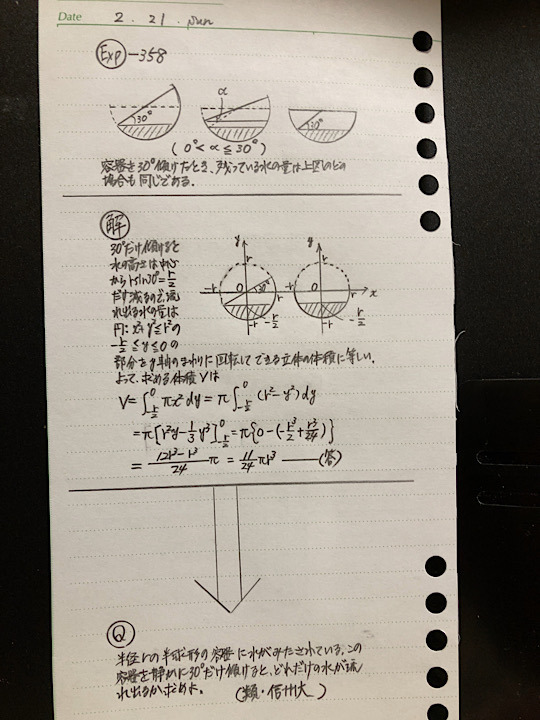 Date 2. 21. Sun
Exp-358
30°
α
30°
(0°<α≦30°)
容器を30°傾けたとき、残っている水の量は上図のどの
場合も同じである。
解
30°だけ傾けると
水の高さは中心
からrsin30°=r/2
だけ減るので、流
れ出る水の量は
円:x²+y²≦r²の
-r/2≦y≦0の
y
r
-r
0
30°
r
-r
-r/2
y
r
-r
0
r
x
-r
-r/2
部分をy軸のまわりに回転してできる立体の体積に等しい。
よって、求める体積Vは
V=∫_{-r/2}^{0} πx²dy=π∫_{-r/2}^{0} (r²-y²)dy
=π[r²y-1/3y³]_{-r/2}^{0}=π{0-(-r³/2+r³/24)}
=12r³-r³/24 π=11/24πr³ (答)
Q
半径rの半球形の容器に水がみたされている。この
容器を静かに30°だけ傾けると、どれだけの水が流
れ出るか求めよ。 (類・信州大)